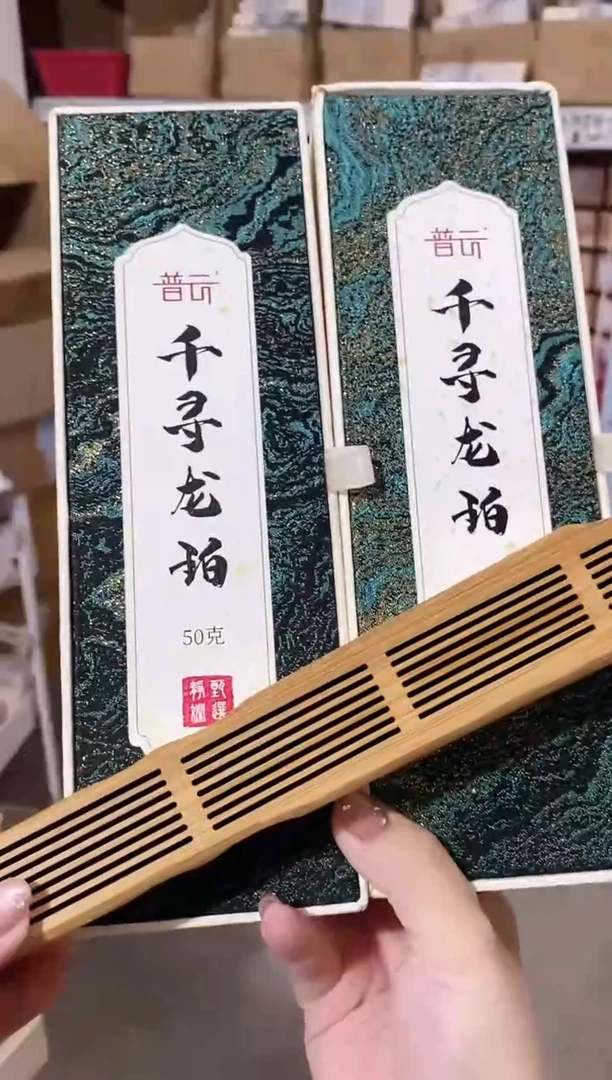 普云
千寻龙珀
50克
甄選
普云
千寻龙珀